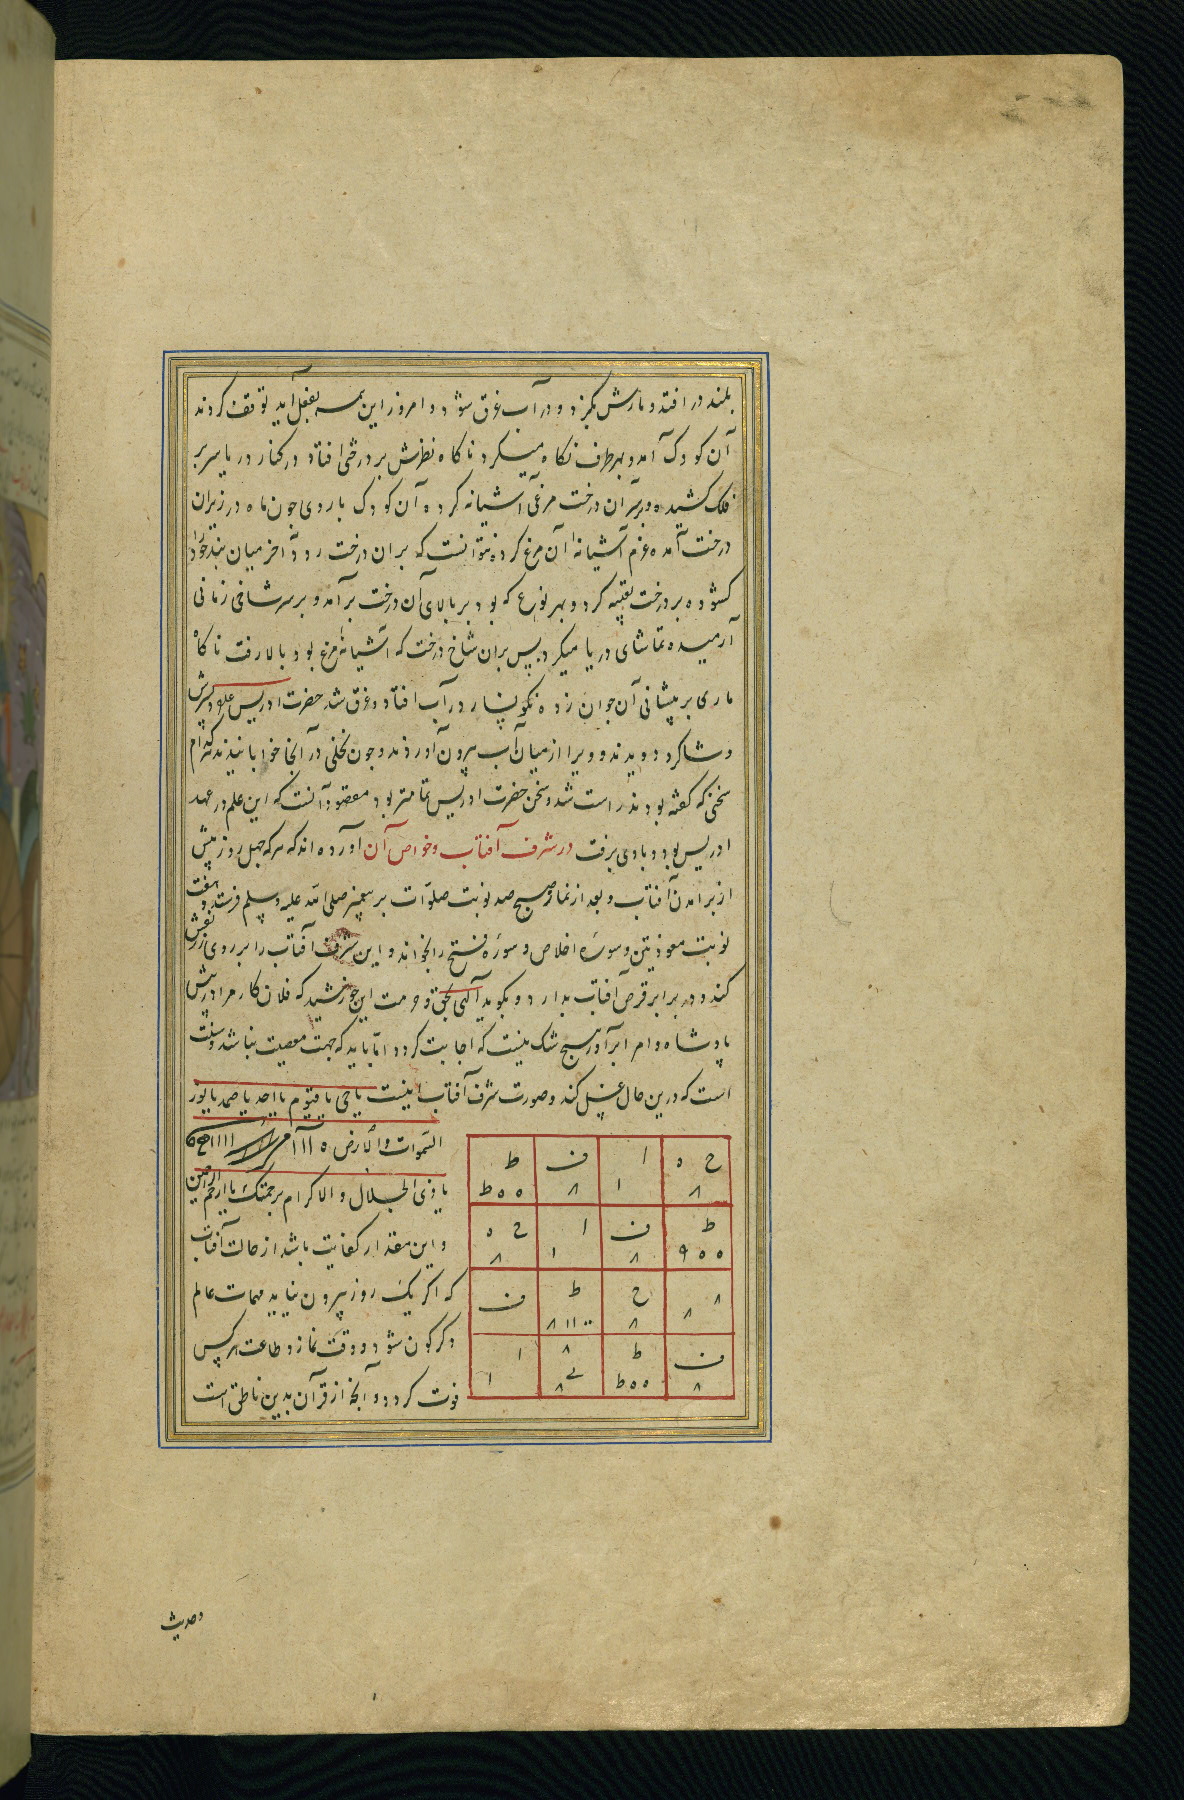 بلند در افتد و مارش بگزد و در آب غرق شود و امروز این همه بفعل آید توقف کردند
آن کودک آمد و بهر طرف نکاه میکرد ناکاه نظرش بر درختی افتاد در کنار دریا سر بر
فلک کشیده و بر سر آن درخت مرغی آشیانه کرده آن کودک با روی چون ماه در زیر آن
درخت آمده عزم آشیانهٔ آن مرغ کرد نتوانست که بر ان درخت رود آخر میان بند خود را
کشوده بر درخت تعبیه کرد و بهر نوع که بود بر بالای آن درخت برآمد و بر سر شاخی زمانی
آرمیده تماشای دریا میکرد پس بران شاخ درخت که آشیانهٔ مرغ بود بالا رفت ناکاه
ماری بر پیشانی آن جوان زده نکونسار در آب افتاد و غرق شد حضرت ادریس علم و پسرش
و شاکرد دویدند و ویرا از میان آب بیرون آوردند و چون نخلی در آنجا خوابانیدند که کدام
سخنی که کفته بودند راست شد و سخن حضرت ادریس تمامتر بود مقصود آنست که این علم در عهد
ادریس بود و با وی برفت در شرف آفتاب و خواص آن آورده اند که هر که چهل روز پیش
از برامدن آفتاب و بعد از نماز صبح صد نوبت صلوات بر پیغمبر صلی الله علیه و سلم فرستد و هفت
نوبت معوذتین و سوره اخلاص و سورهٔ فتح را بخواند و این شرف آفتاب را بر روی زر نقش
کند و در برابر قرص آفتاب بدارد و بکوید آلهی بحق و حرمت این خورشید که فلان کار مرا در پیش
پادشاه و امرا برآور هیچ شک نیست که اجابت کردد اما باید که جهت معصیت نباشد و سنت
است که درین حال غسل کند و صورت شرف آفتاب اینست یا حی یا قیوم یا احد یا صمد یا نور
السموات و الارض
یا ذی الجلال و الاکرام برحمتک یا ارحم الراحمین
و این مقدار کفایت باشد از حالت آفتاب
که اکر یک روز بیرون نیاید مهمات عالم
دکرکون شود و وقت نماز و طاعت هر کس
فوت کردد و آنجه از قرآن بدین ناطق است
ح ٥ ٨ ا ١ ف ٨ ط ٥٥ط
ط ٩٥٥ ف ٨ ا ١ ح ٥ ٨
٨ ٨ ح ٨ ط ف
ف ٨ ط ٥٥ط ٨ ٨ ا ١
وحدیث